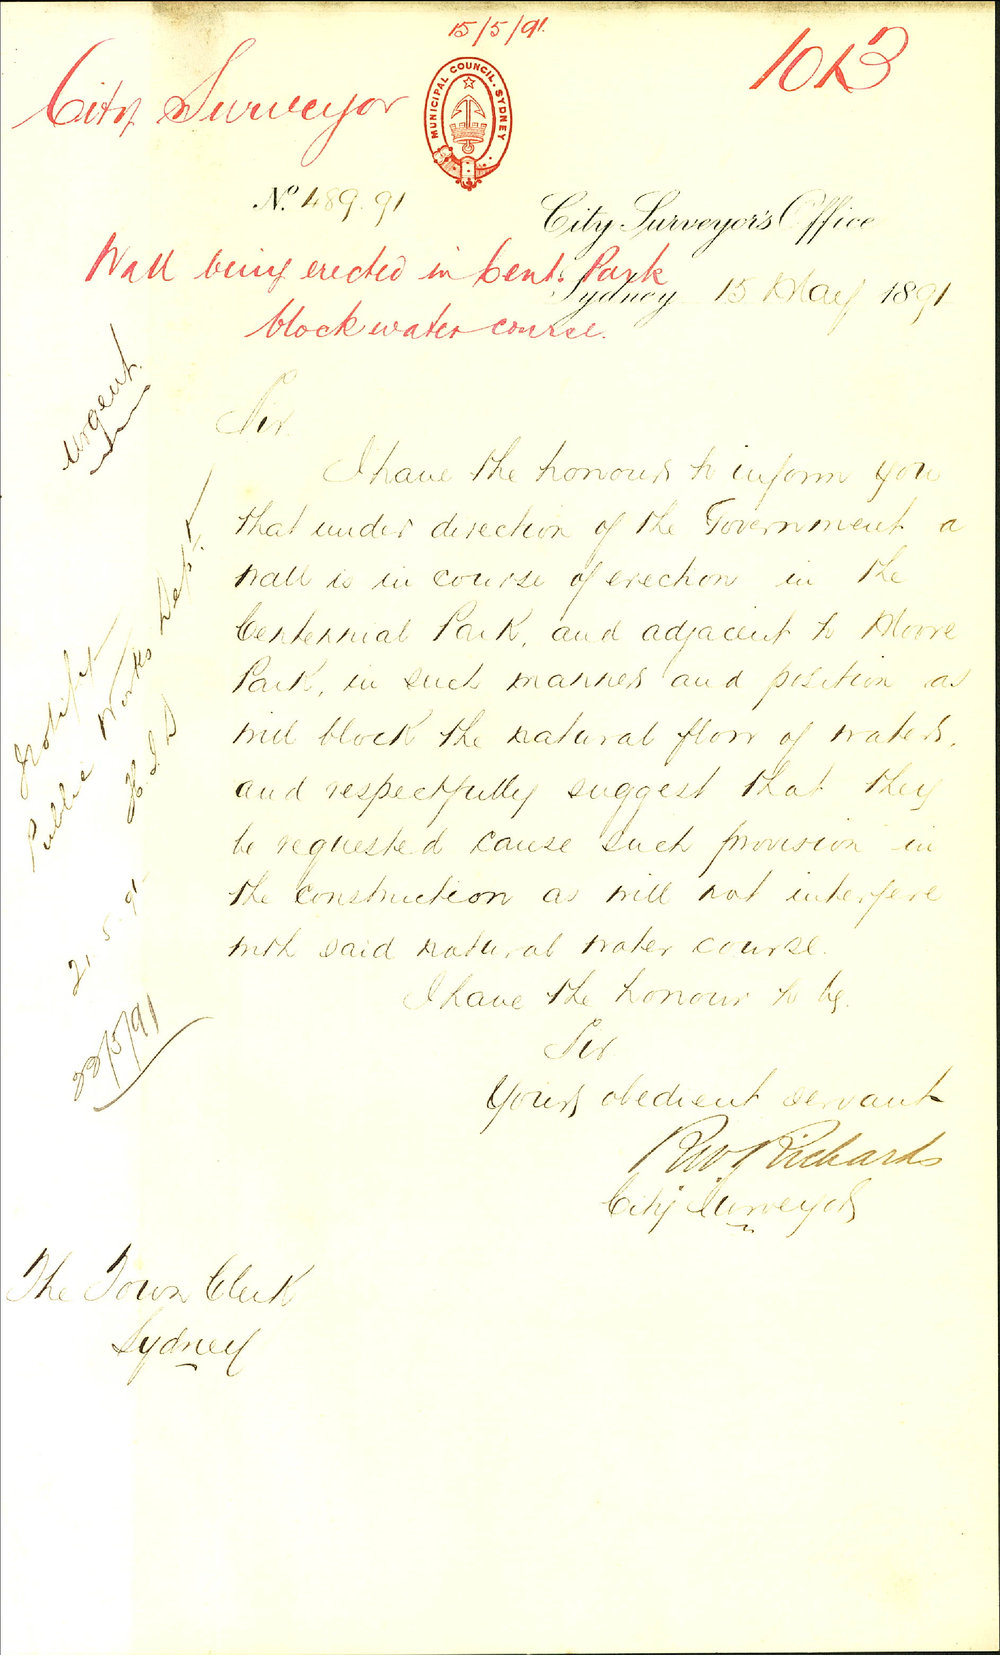 15/5/91.
1013
City Surveyor
MUNICIPAL COUNCIL. SYDNEY
No. 489.91
City Surveyor's Office
Wall being erected in Cent: Park
Sydney 15 May 1891
block water course.
Urgent.
Sir
I have the honour to inform you
that under direction of the Government a
wall is in course of erection in the
Centennial Park, and adjacent to Moore
Park, in such manner and position as
will block the natural flow of waters.
and respectfully suggest that they
be requested cause such provision in
the construction as will not interfere
with said natural water course.
I have the honour to be.
Sir
Your obedient servant
Richards
City Surveyor
Notify
Public Works Dept.
21.5.91
22/5/91
The Town Clerk
Sydney